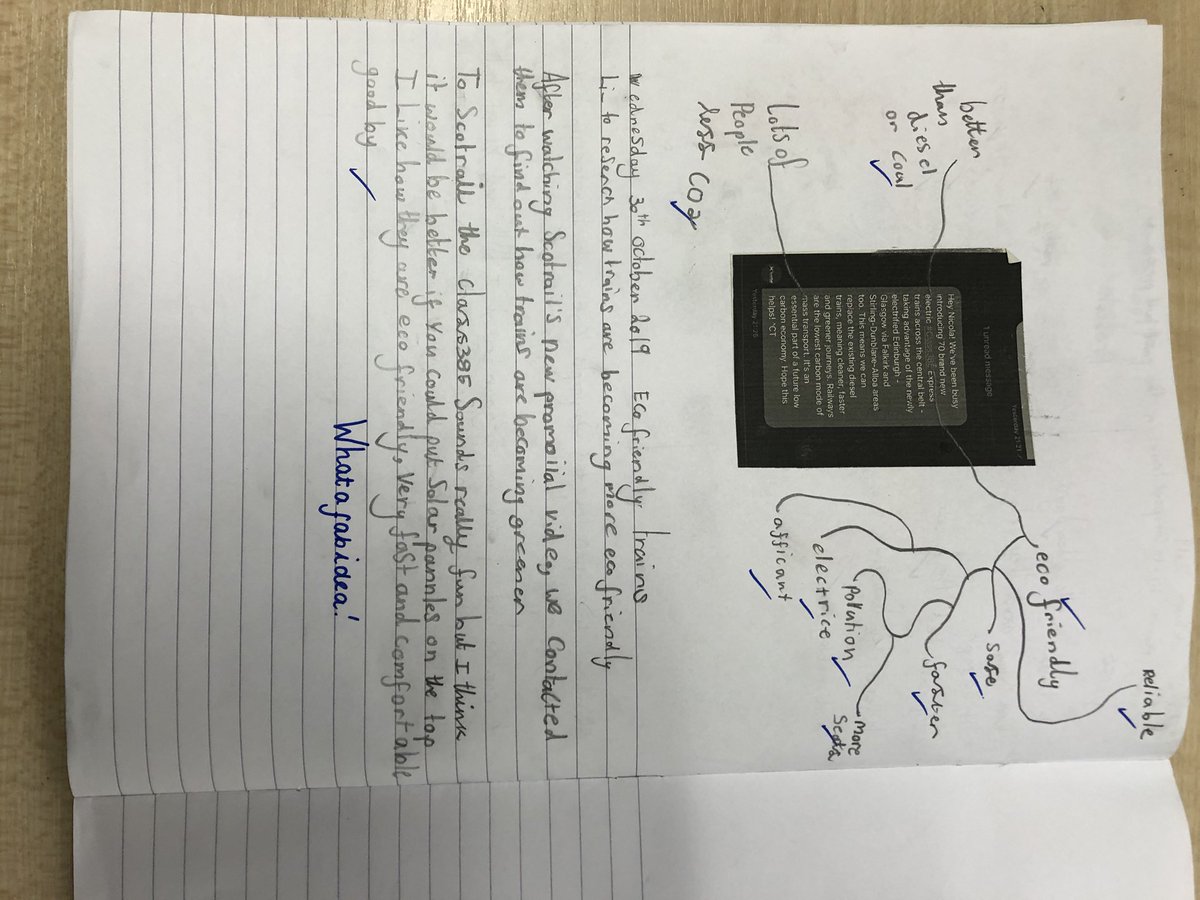 better
than
diesel
or coal
Lots of
People
less CO2
1 unread message
Yesterday 21:27
Hey Nicola! We've been busy
introducing 70 brand new
electric Express
trains across the central belt -
taking advantage of the newly
electrified Edinburgh -
Glasgow via Falkirk and
Stirling-Dunblane-Alloa areas
too. This means we can
repace the existing diesel
trains, meaning cleaner, faster
and greener journeys. Railways
are the lowest carbon mode of
mass transport. It's an
essential part of a future low
carbon economy. Hope this
helps! ^CT
eco friendly
reliable
safe
faster
more
Seats
Polution
electrice
afficant
Wednesday 30th october 2019 Eco friendly Trains
L.i- to reserch how trains are becoming more eco friendly
After watching Scotrail's new promoiial video, we Contacted
them to find out how trains are becoming greener
To Scotrail the class385 Sounds really fun but I think
it would be better if You could put Solar pannles on the top
I Like how they are eco friendly, Very fast and comfortable
good by
What a fab idea!